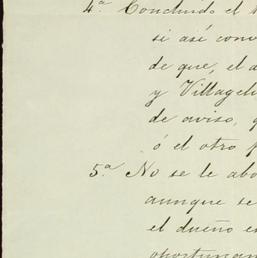 4.ª Concluido el
si así conv
de que, el a
y Villagel
de aviso, q
ó el otro p
5.ª No se le abo
aunque se
el dueño e
oportunam